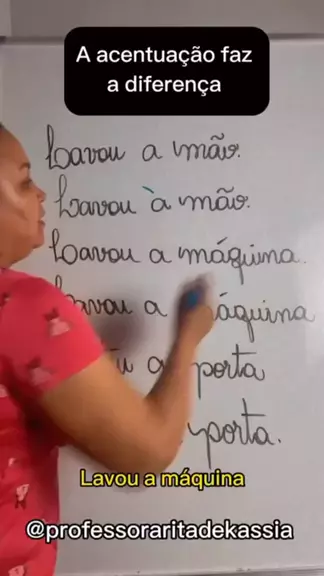 A acentuação faz
a diferença
Lavou a mão.
Lavou à mão.
Lavou a máquina.
a máquina
a porta
porta.
Lavou a máquina
@professoraritadekassia